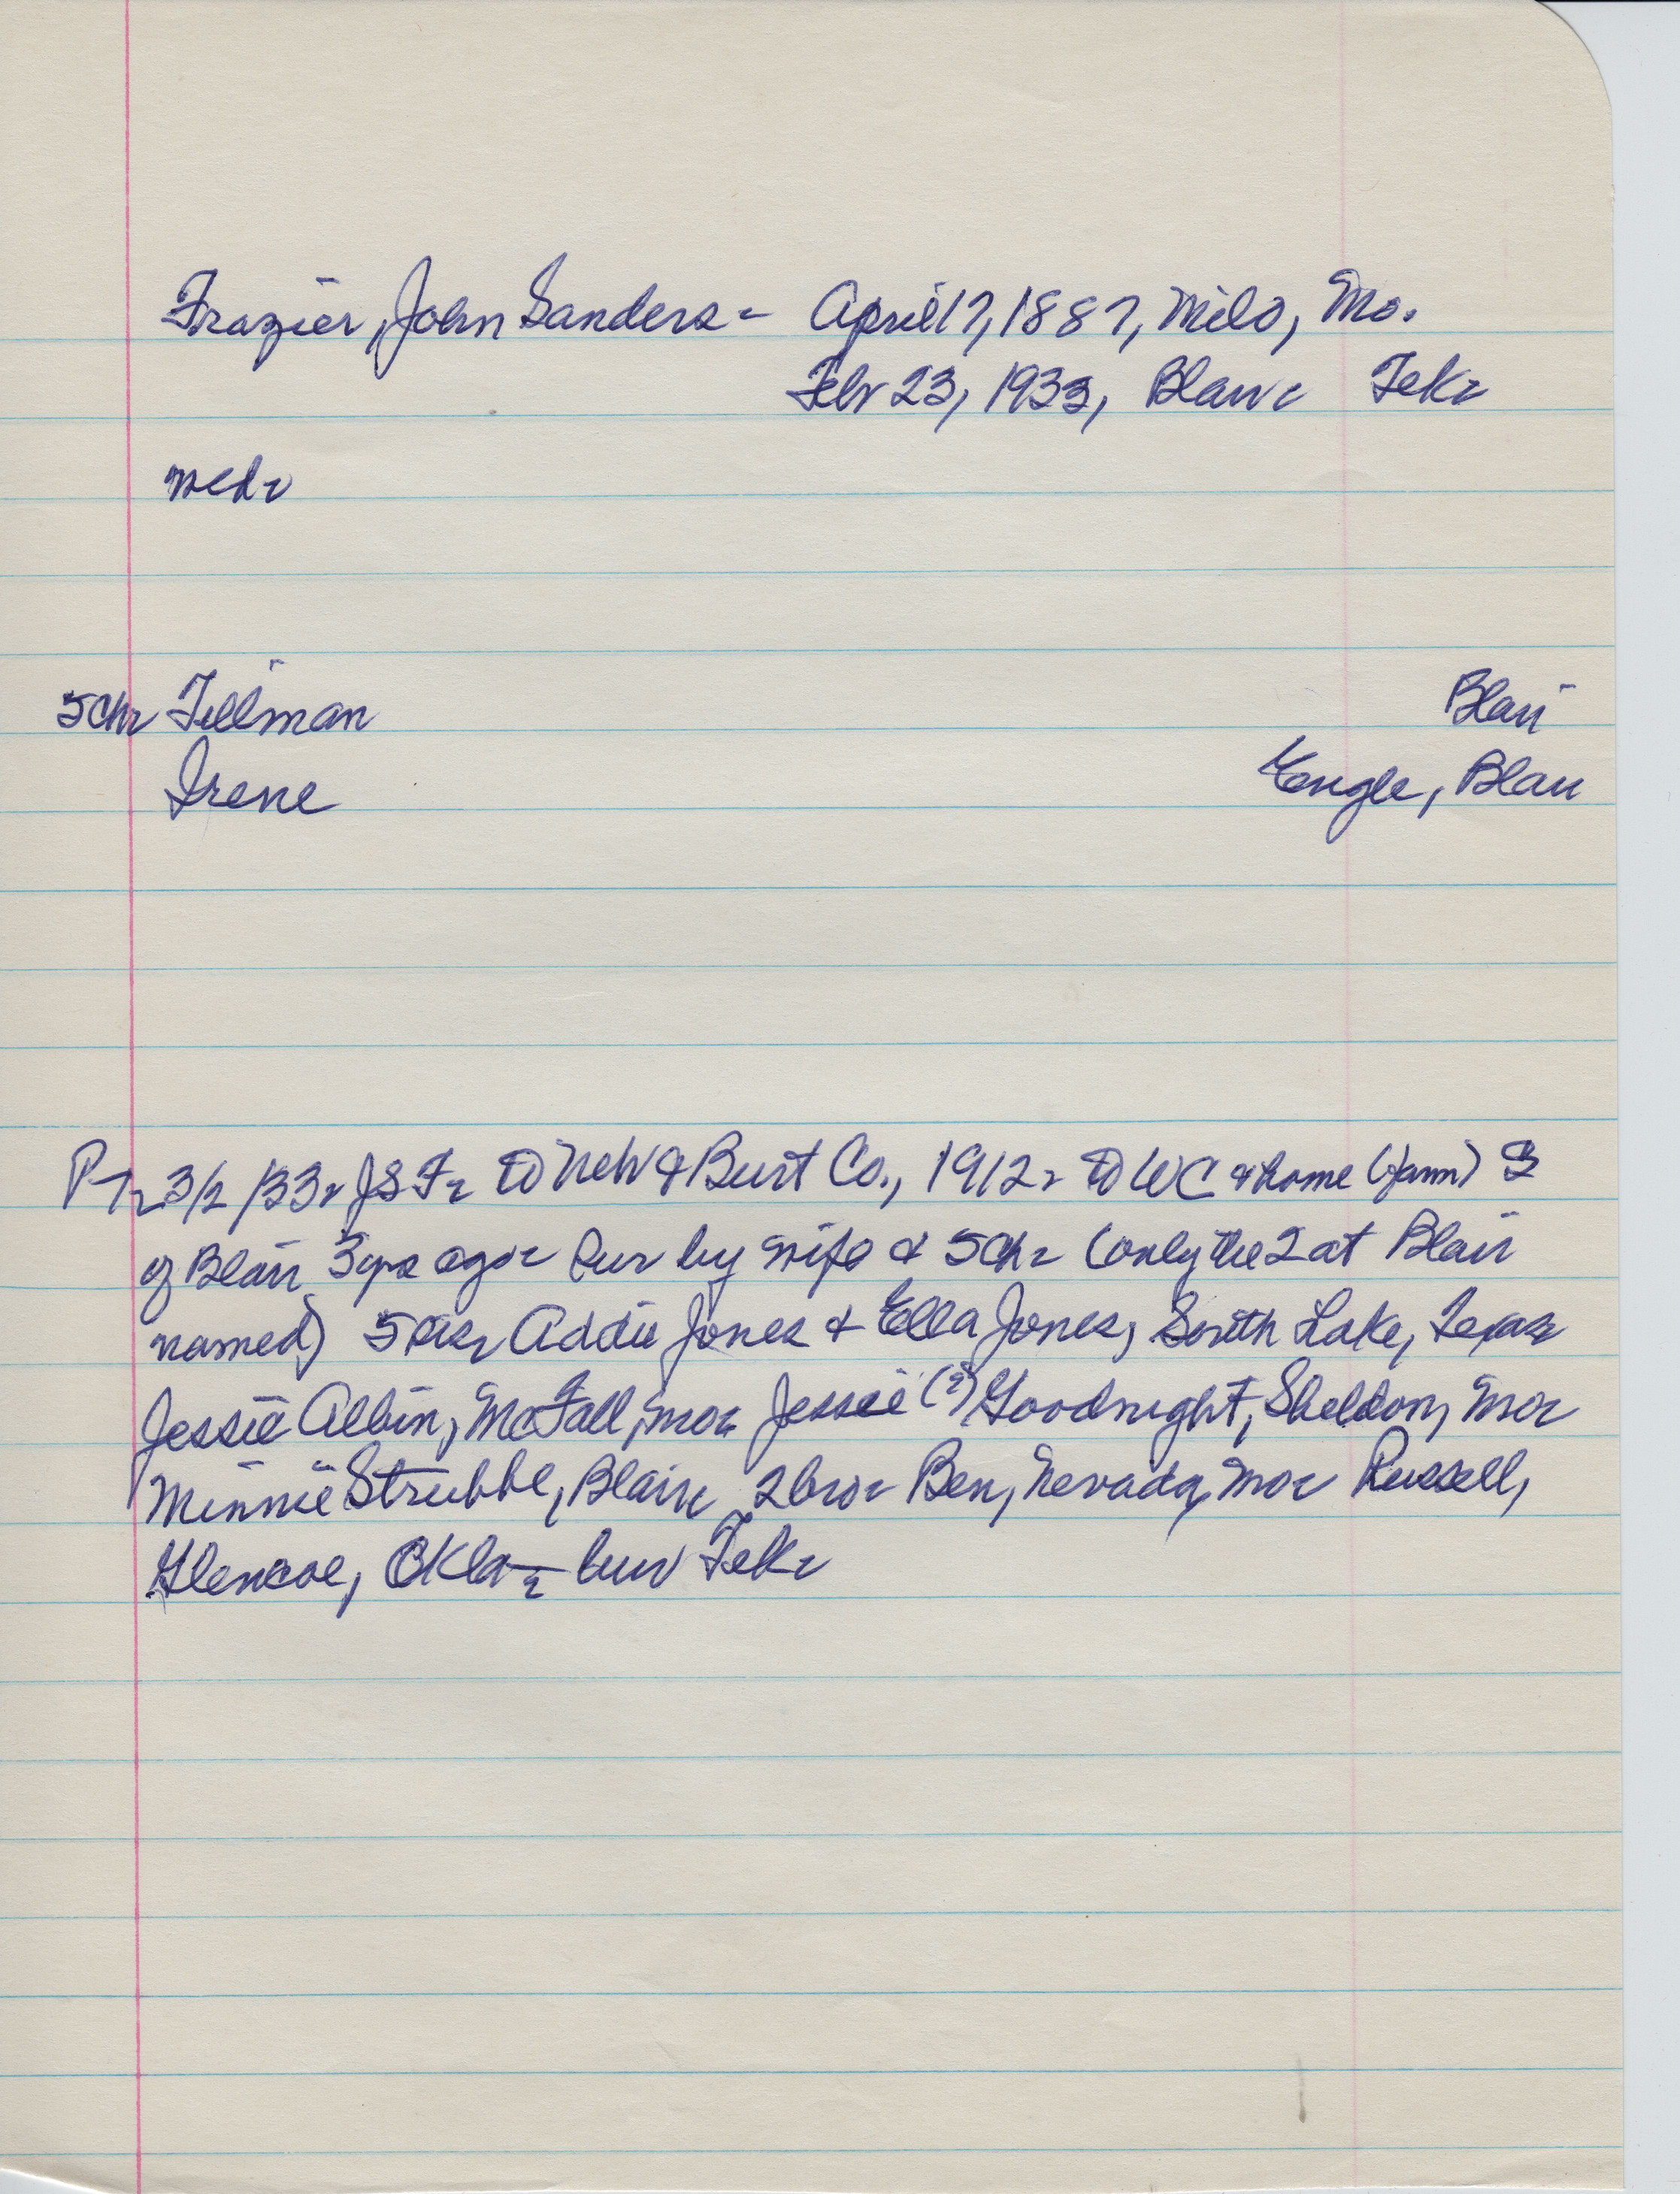 Frazier, John Sanders - April 17, 1887, Milo, Mo.
Feb 23, 1933, Blair. Tek.
md.
5 ch. Tillman Blair
Irene Engle, Blair
P-T. 3/2/33. JSF. to Neb & Burt Co., 1912. to WC & home (farm) S
of Blair 3 yrs ago. Sur by wife & 5 ch. (only the 2 at Blair
named) 5 sis. Addie Jones & Ella Jones, South Lake, Texas
Jessie Albin, McFall, Mo. Jessie (?) Goodnight, Sheldon, Mo.
Minnie Strubble, Blair. 2 bro. Ben, Nevada, Mo. Russell,
Glencoe, Okla. - bur Tek.